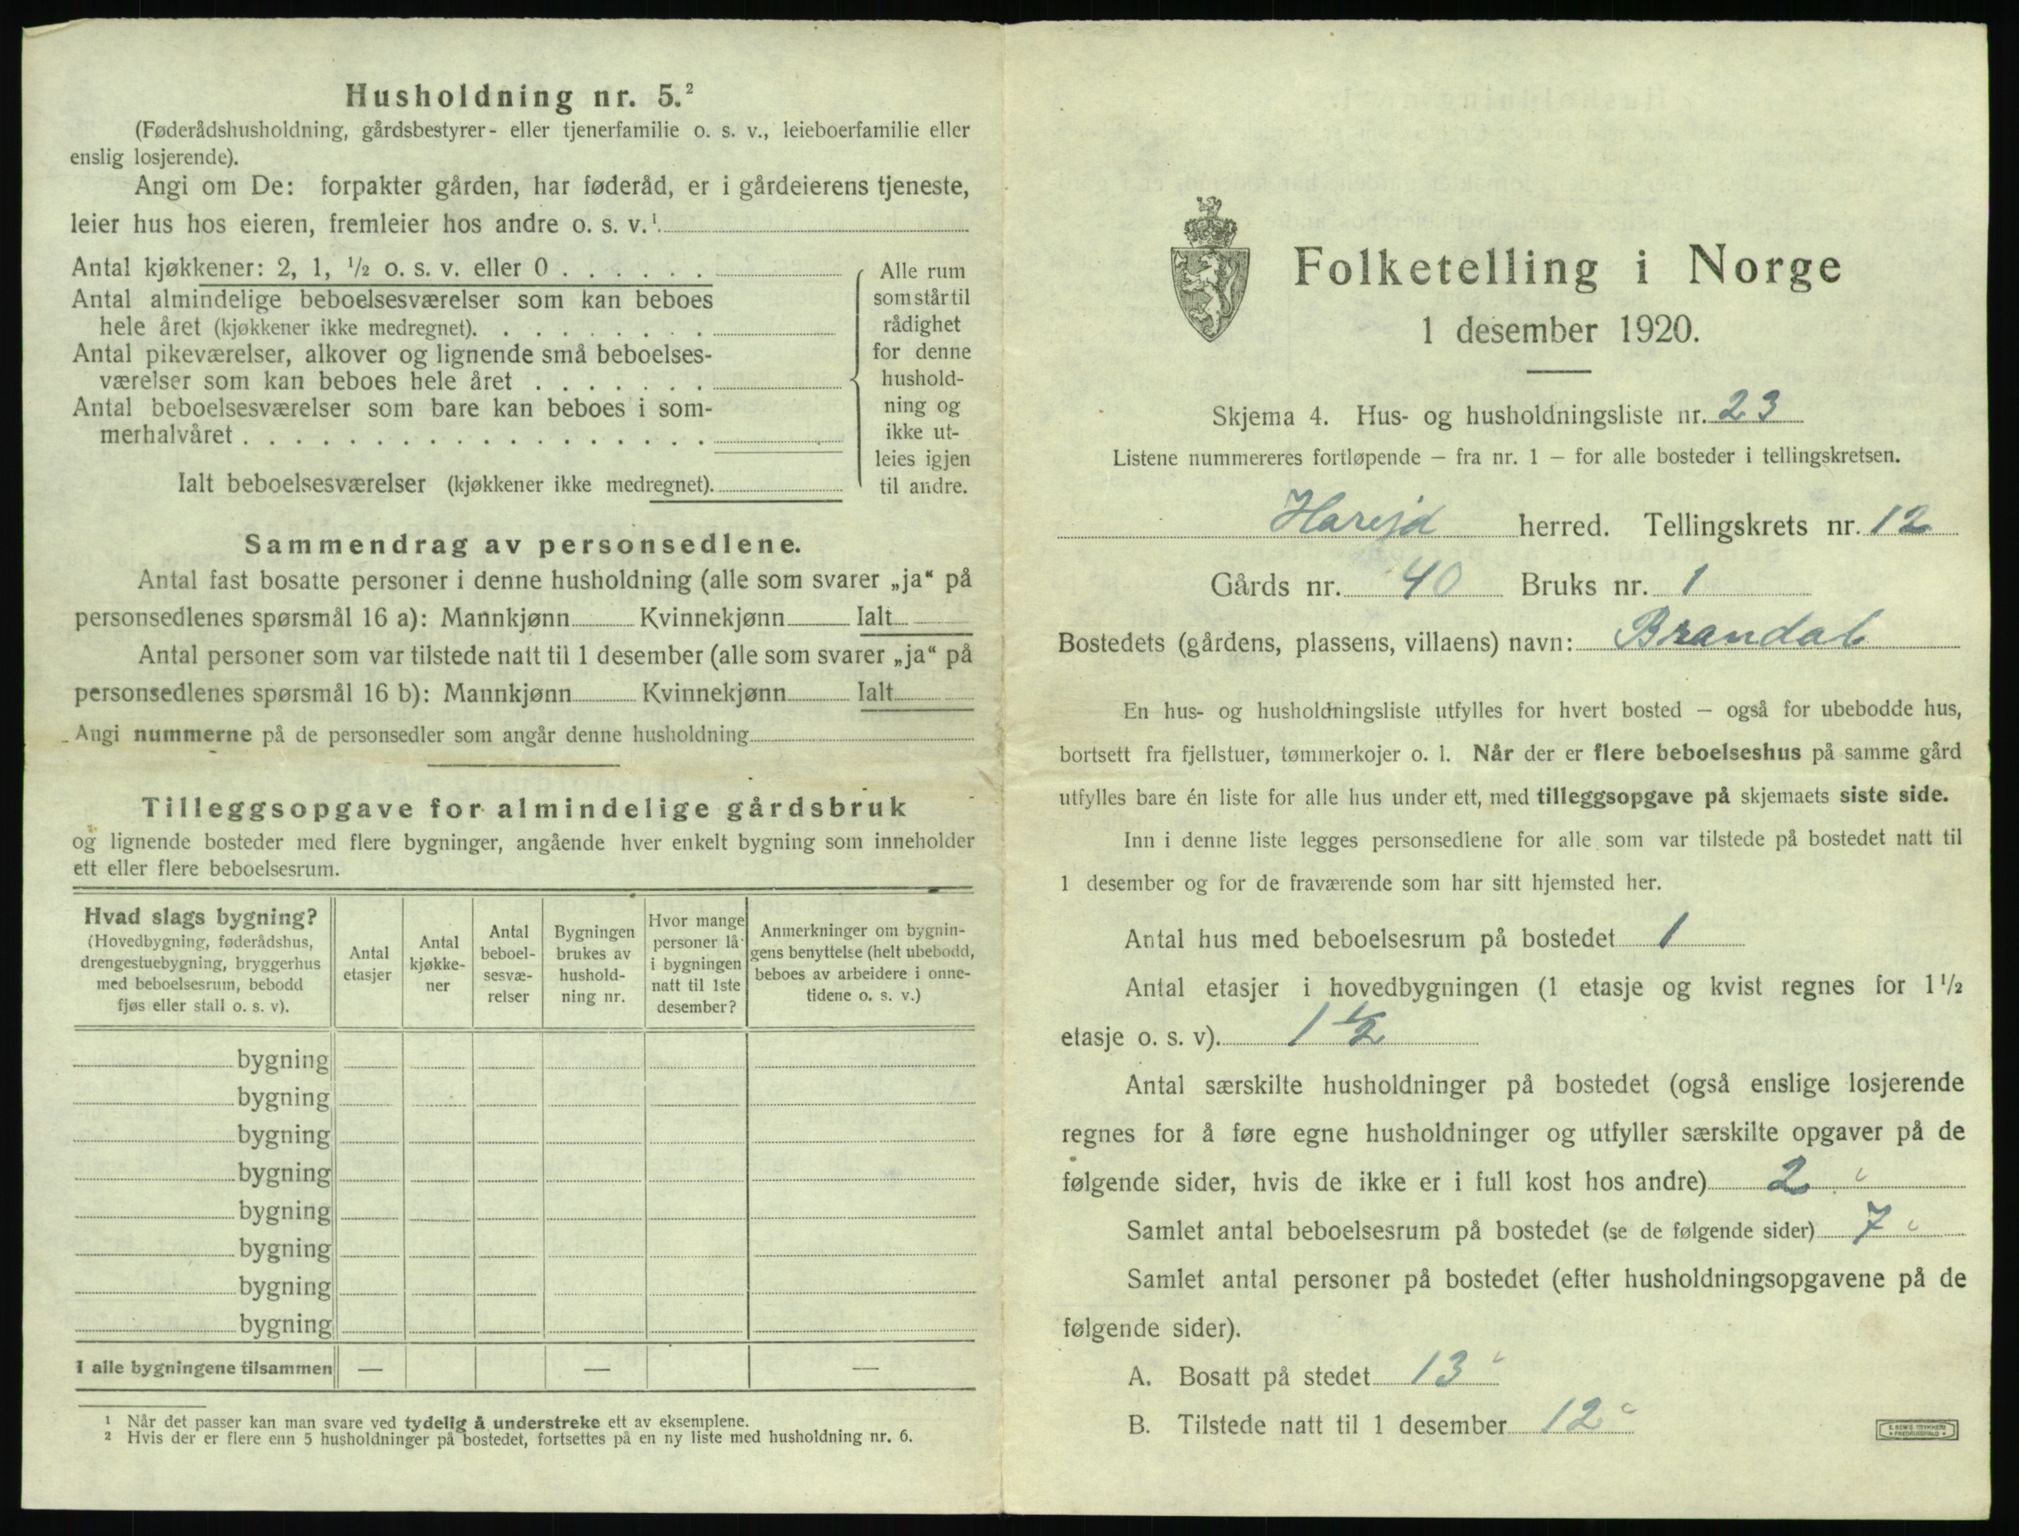 Husholdning nr. 5.²
(Føderådshusholdning, gårdsbestyrer- eller tjenerfamilie o. s. v., leieboerfamilie eller
enslig losjerende).
Angi om De: forpakter gården, har føderåd, er i gårdeierens tjeneste,
leier hus hos eieren, fremleier hos andre o. s. v.¹
Antal kjøkkener: 2, 1, ½ o. s. v. eller 0 . . . . . .
Antal almindelige beboelsesværelser som kan beboes
hele året (kjøkkener ikke medregnet). . . . . . . . .
Antal pikeværelser, alkover og lignende små beboelses-
værelser som kan beboes hele året . . . . . . .
Antal beboelsesværelser som bare kan beboes i som-
merhalvåret . . . . . . . . . . . . . . . . . .
Ialt beboelsesværelser (kjøkkener ikke medregnet).
Alle rum
som står til
rådighet
for denne
hushold-
ning og
ikke ut-
leies igjen
til andre.
Sammendrag av personsedlene.
Antal fast bosatte personer i denne husholdning (alle som svarer „ja“ på
personsedlenes spørsmål 16 a): Mannkjønn Kvinnekjønn Ialt
Antal personer som var tilstede natt til 1 desember (alle som svarer „ja“ på
personsedlenes spørsmål 16 b): Mannkjønn Kvinnekjønn Ialt
Angi nummerne på de personsedler som angår denne husholdning
Tilleggsopgave for almindelige gårdsbruk
og lignende bosteder med flere bygninger, angående hver enkelt bygning som inneholder
ett eller flere beboelsesrum.
Hvad slags bygning?
(Hovedbygning, føderådshus,
drengestuebygning, bryggerhus
med beboelsesrum, bebodd
fjøs eller stall o. s. v).
Antal
etasjer
Antal
kjøkke-
ner
Antal
beboel-
sesvæ-
relser
Bygningen
brukes av
hushold-
ning nr.
Hvor mange
personer lå
i bygningen
natt til 1ste
desember?
Anmerkninger om bygnin-
gens benyttelse (helt ubebodd,
beboes av arbeidere i onne-
tidene o. s. v.)
bygning
bygning
bygning
bygning
bygning
bygning
bygning
bygning
I alle bygningene tilsammen — — —
¹ Når det passer kan man svare ved tydelig å understreke ett av eksemplene.
² Hvis der er flere enn 5 husholdninger på bostedet, fortsettes på en ny liste med husholdning nr. 6.
Folketelling i Norge
1 desember 1920.
Skjema 4. Hus- og husholdningsliste nr. 23
Listene nummereres fortløpende – fra nr. 1 – for alle bosteder i tellingskretsen.
Hareid herred. Tellingskrets nr. 12
Gårds nr. 40 Bruks nr. 1
Bostedets (gårdens, plassens, villaens) navn: Brandal
En hus- og husholdningsliste utfylles for hvert bosted – også for ubebodde hus,
bortsett fra fjellstuer, tømmerkojer o. l. Når der er flere beboelseshus på samme gård
utfylles bare én liste for alle hus under ett, med tilleggsopgave på skjemaets siste side.
Inn i denne liste legges personsedlene for alle som var tilstede på bostedet natt til
1 desember og for de fraværende som har sitt hjemsted her.
Antal hus med beboelsesrum på bostedet 1
Antal etasjer i hovedbygningen (1 etasje og kvist regnes for 1½
etasje o. s. v). 1½
Antal særskilte husholdninger på bostedet (også enslige losjerende
regnes for å føre egne husholdninger og utfyller særskilte opgaver på de
følgende sider, hvis de ikke er i full kost hos andre) 2
Samlet antal beboelsesrum på bostedet (se de følgende sider) 7
Samlet antal personer på bostedet (efter husholdningsopgavene på de
følgende sider).
A. Bosatt på stedet 13
B. Tilstede natt til 1 desember 12